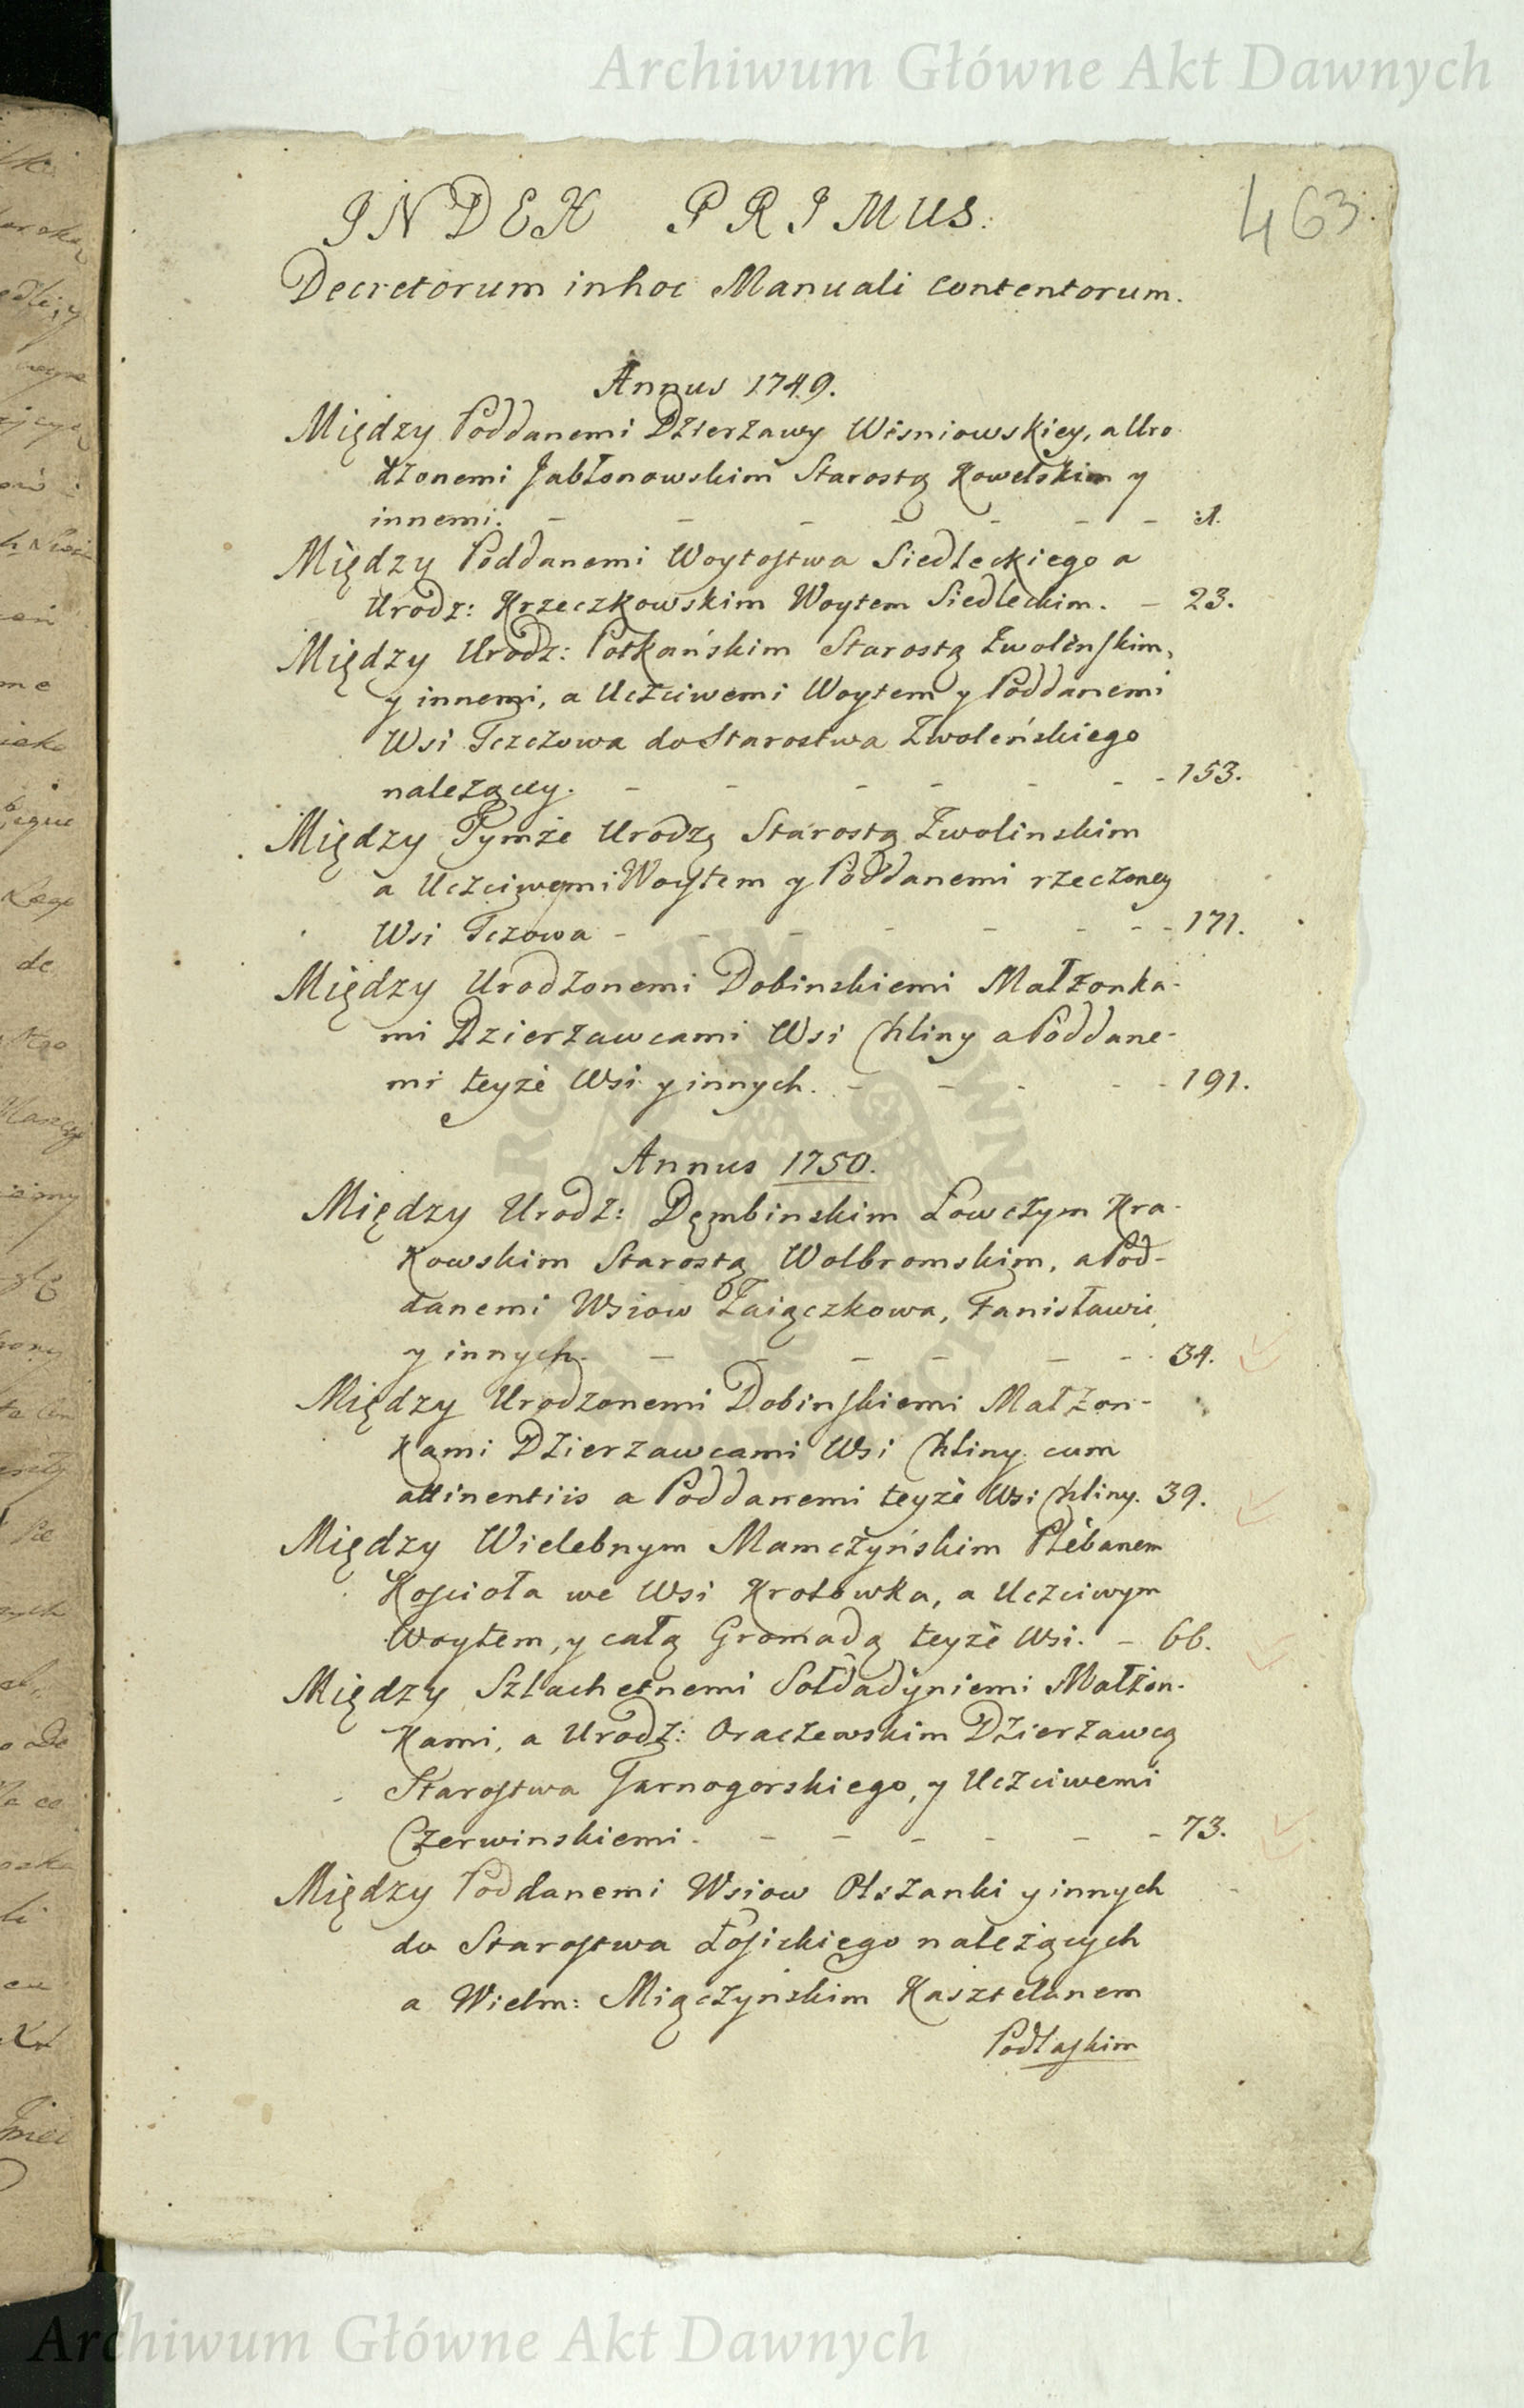 Archiwum Główne Akt Dawnych
463.
INDEX PRIMUS.
Decretorum in hoc Manuali contentorum.
Annus 1749.
Między Poddanemi Dzierzawy Wisniowskiey, a Uro
dzonemi Jabłonowskim Starostą Kowelskim y
innemi. - - - - - - - 1.
Między Poddanemi Woytostwa Siedleckiego a
Urodz: Krzeczkowskim Woytem Siedleckim. - 23.
Między Urodz: Potkańskim Starostą Zwolinskim,
y innemi, a Uczciwemi Woytem y Poddanemi
Wsi Tczczowa do Starostwa Zwoleńskiego
nalezącey. - - - - - - 153.
Między Tymże Urodzą Starostą Zwolinskim
a Uczciwemi Woytem y Poddanemi rzeczoney
Wsi Tczowa - - - - - - - - 171.
Między Urodzonemi Dobinskiemi Małzonka-
mi Dzierzawcami Wsi Chliny a Poddane-
mi teyże Wsi y innych. - - - - - 191.
Annus 1750.
Między Urodz: Dębinskim Łowczym Kra-
kowskim Starostą Wolbromskim, a Pod-
danemi Wsiow Zaiączkowa, Fanisławic
y innych. - - - - - - 34.
Między Urodzonemi Dobinskiemi Małzon-
kami Dzierzawcami Wsi Chliny cum
attinentiis a Poddanemi teyże Wsi Chliny. 39.
Między Wielebnym Mamczyńskim Plebanem
Kościoła we Wsi Krolowka, a Uczciwym
Woytem, y całą Gromadą teyże Wsi. - 66.
Między Szlachetnemi Sołdadyniemi Małżon-
kami, a Urodz: Oraczewskim Dzierzawcą
Starostwa Tarnogorskiego, y Uczciwemi
Czerwinskiemi. - - - - - - 73.
Między Poddanemi Wsiow Olszanki y innych
do Starostwa Łosickiego należących
a Wielm: Miączyńskim Kasztelanem
Podlaskim
Archiwum Główne Akt Dawnych